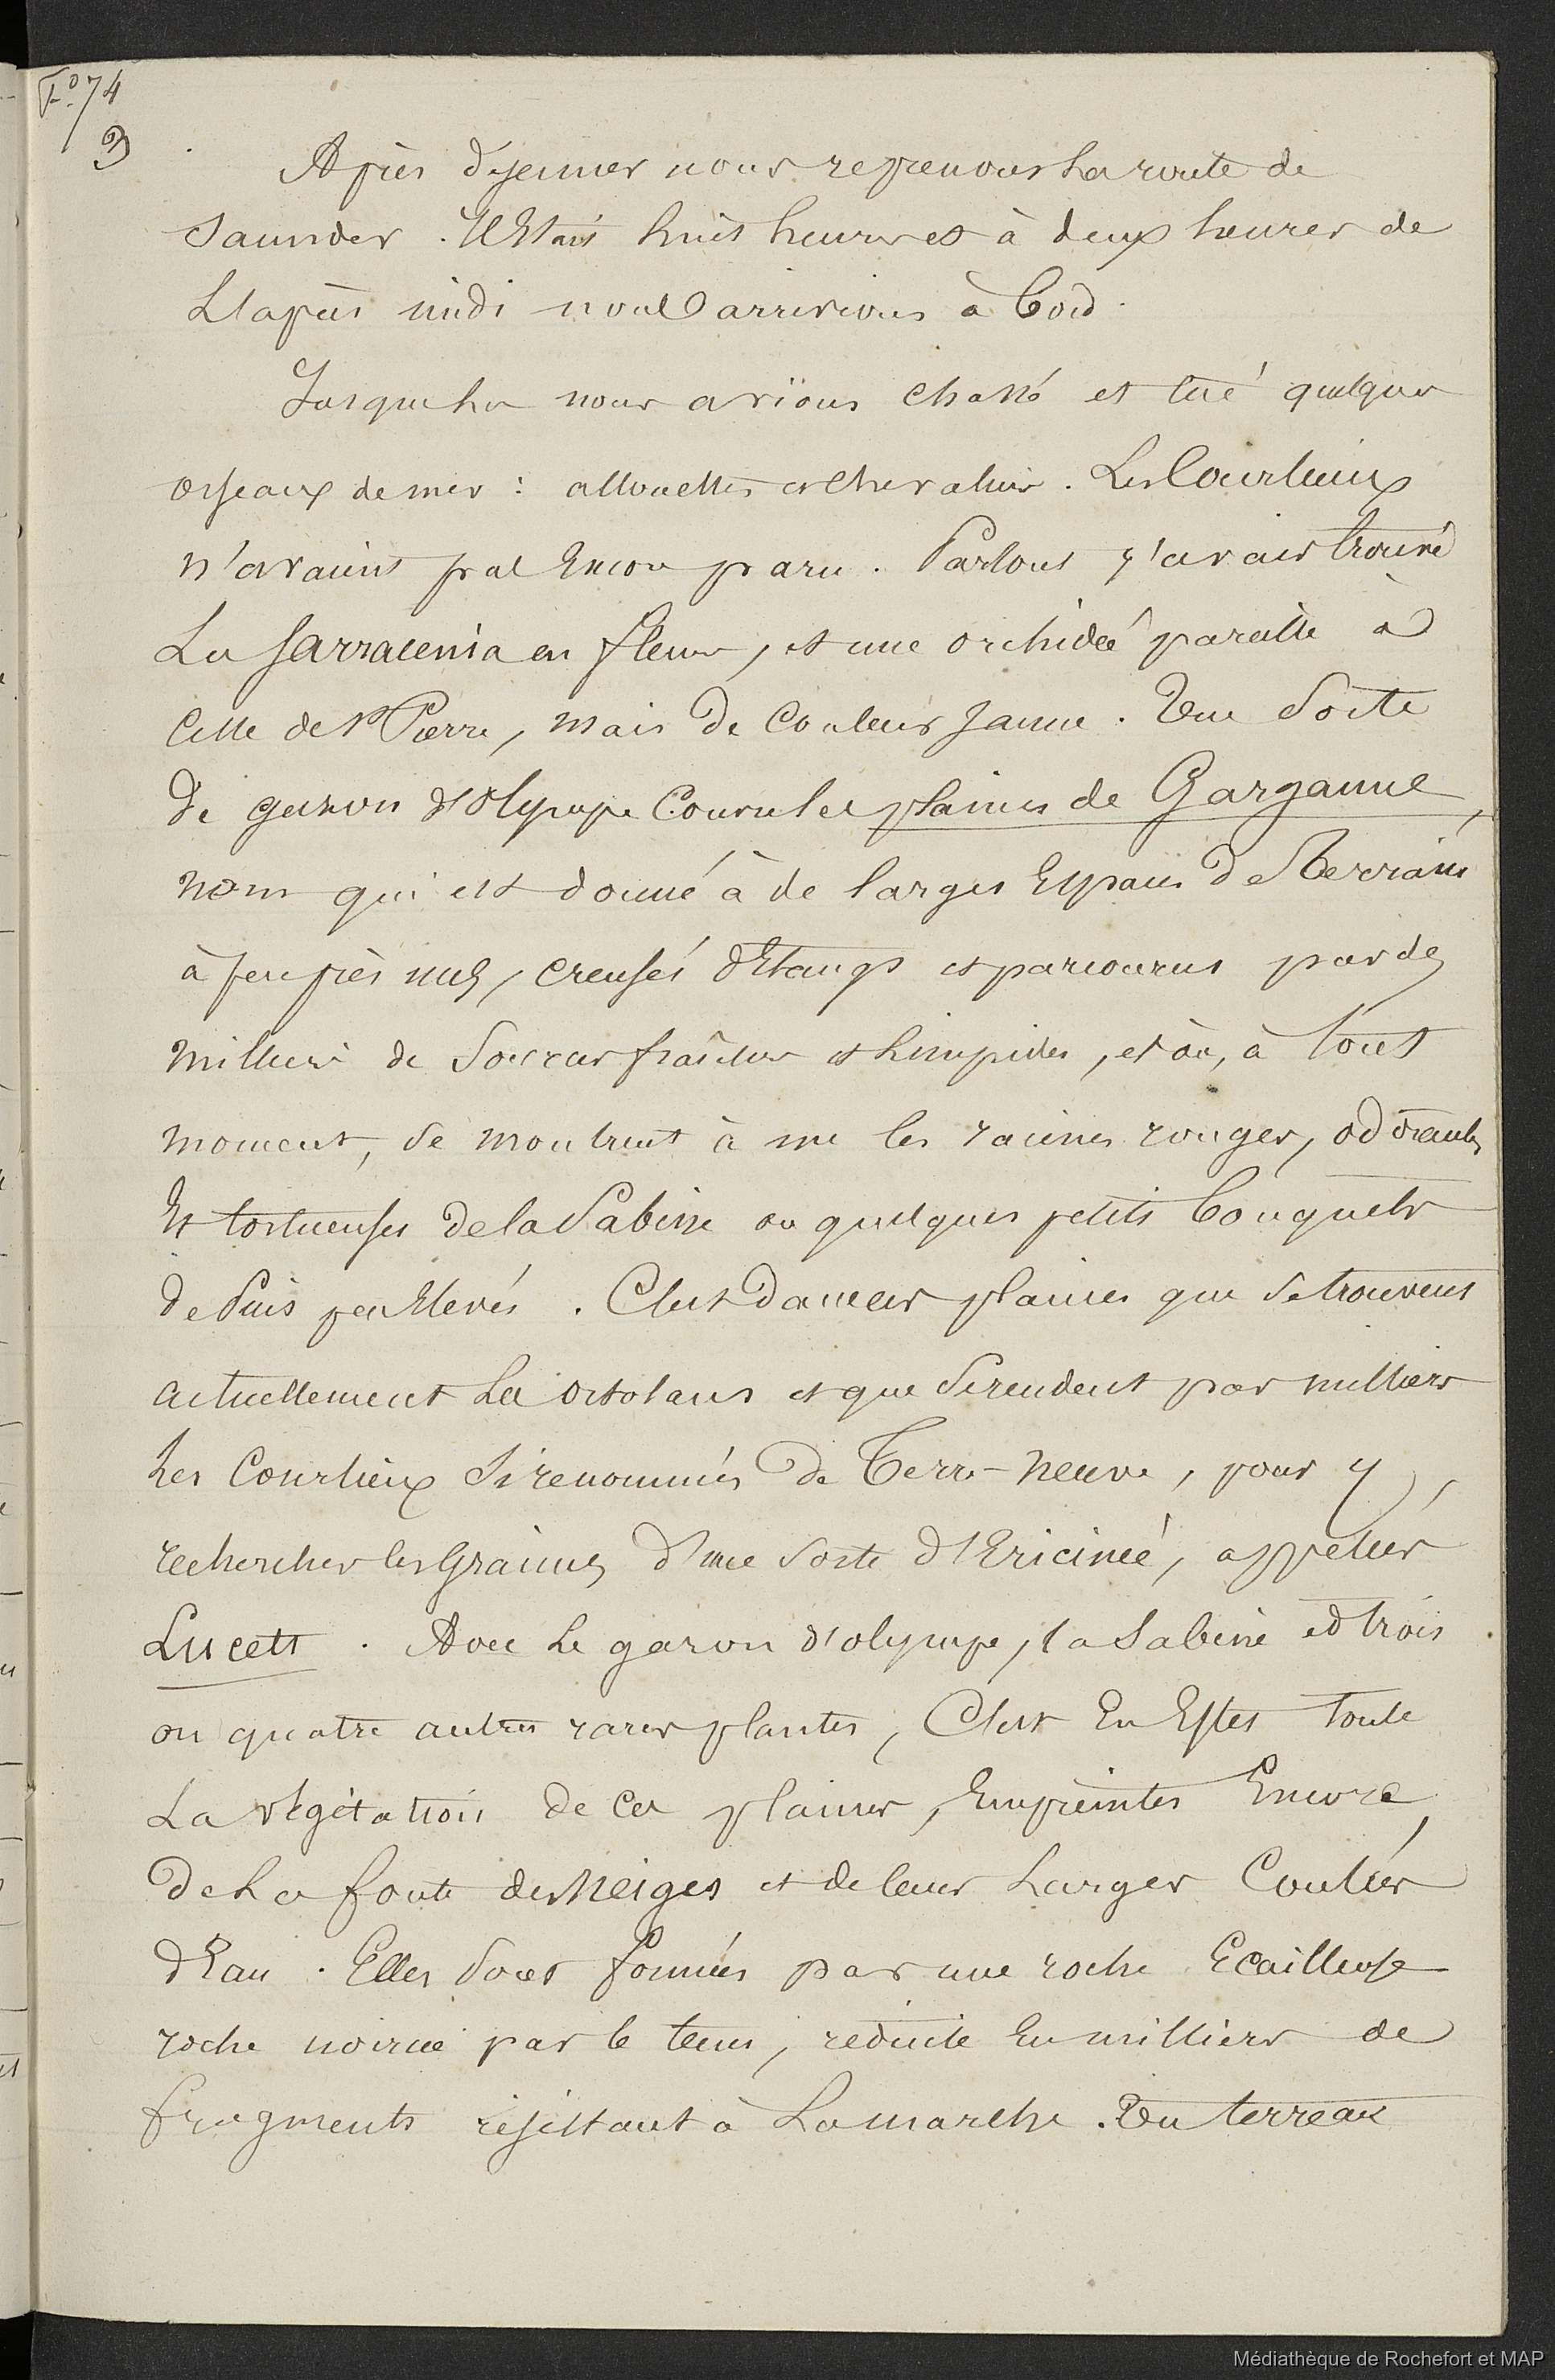 Fº 74
D
Après déjeuner nous reprenons la route de
Saunder. Il était huit heures et à deux heures de
l'après midi nous arrivions à bord.
Jusque là nous avïons chassé et tué quelques
oiseaux de mer : allouettes et chevaliers. Les Courlieux
n'avaient pas encore paru. Partout j'avais trouvé
La Sarracenia en fleur, et une orchidée pareille à
Celle de St Pierre, mais de couleur jaune. Une sorte
de gazon d'olympe couvre les plaines de Garganne,
nom qui est donné à de larges espaces de terrains
à peu près nus, creusés d'étangs et parcourus par des
milliers de sources fraîches et limpides, et où, à tout
moment, se montrent à nu les racines rouges, odorantes
Et tortueuses de la Sabine ou quelques petits bouquets
de Pins peu élevés. C'est dans ces plaines que se trouvent
actuellement les ortolans et que se rendent par milliers
les Courlieux si renommés de Terre-neuve, pour y
rechercher les graines d'une sorte d'Ericinée, appelées
Lucets. Avec le gazon d'olympe, la Sabine et trois
ou quatre autres rares plantes, C'est en effet toute
La végétation de ces plaines, empreintes encore
de la fonte des neiges et de leurs larges coulées
d'eau. Elles sont formées par une roche Ecailleuse
roche noircie par le tems, réduite en milliers de
fragments résistant à la marche. Un terreau
Médiathèque de Rochefort et MAP